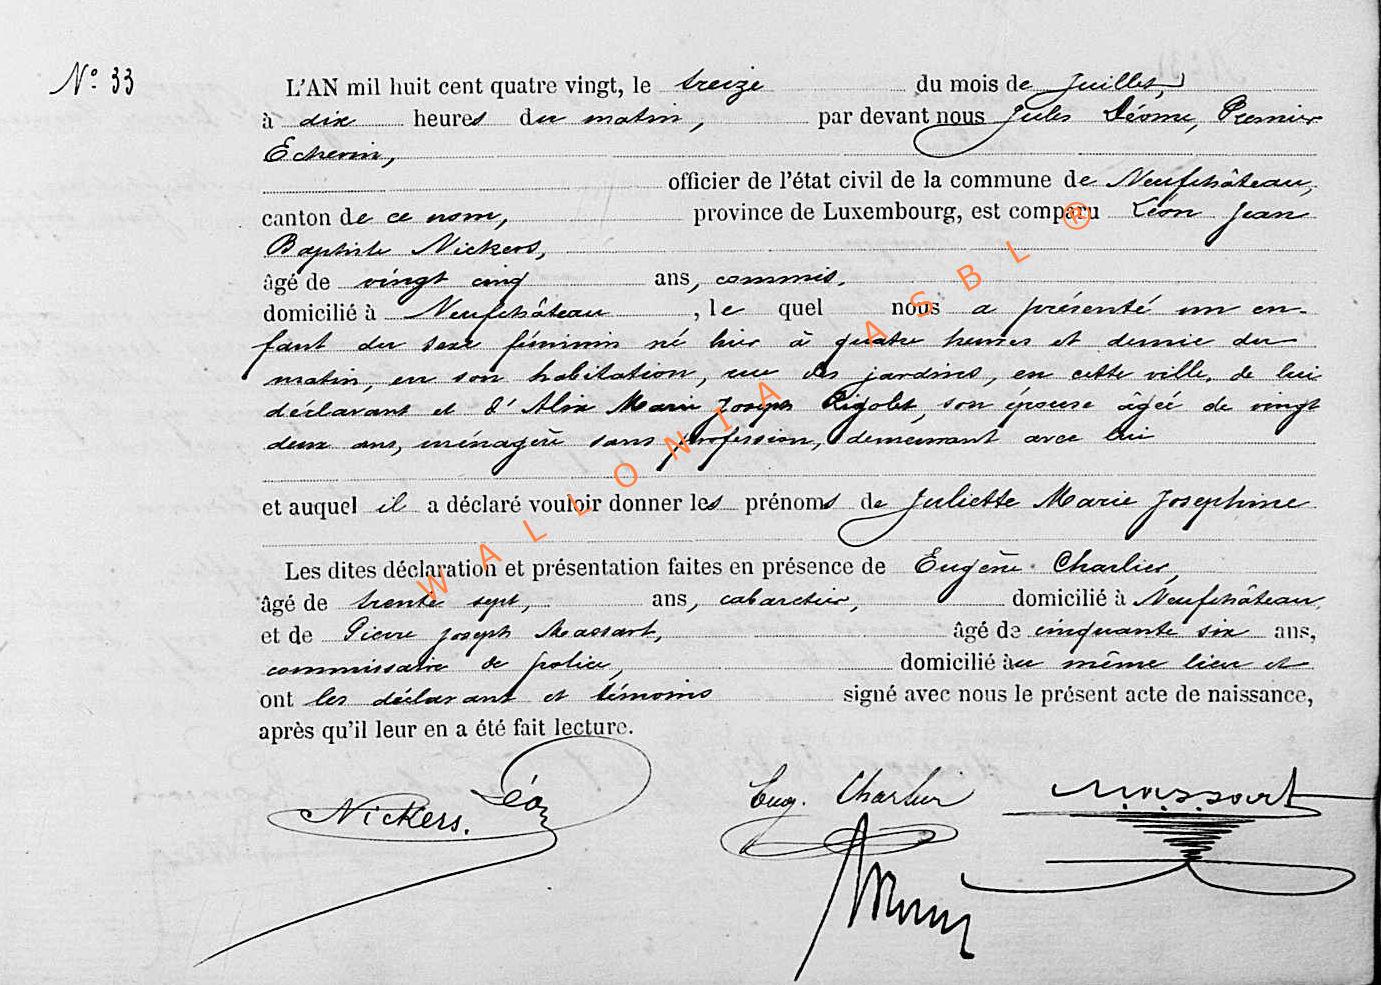 N° 33
L'AN mil huit cent quatre vingt, le treize du mois de Juillet,
à dix heures du matin, par devant nous Jules Déome, Premier
Echevin,
officier de l'état civil de la commune de Neufchâteau,
canton de ce nom, province de Luxembourg, est comparu Léon Jean
Baptiste Nickers,
âgé de vingt cinq ans, commis,
domicilié à Neufchâteau, le quel nous a présenté un en-
fant du sexe féminin né hier à quatre heures et demie du
matin, en son habitation, rue des jardins, en cette ville, de lui
déclarant et d'Alix Marie Joseph Rigolet, son épouse âgée de vingt
deux ans, ménagère sans profession, demeurant avec lui
et auquel il a déclaré vouloir donner les prénoms de Juliette Marie Josephine
Les dites déclaration et présentation faites en présence de Eugène Charlier,
âgé de trente sept, ans, cabaretier, domicilié à Neufchâteau,
et de Pierre Joseph Massart, âgé de cinquante six ans,
commissaire de police, domicilié àu même lieu et
ont les déclarant et témoins signé avec nous le présent acte de naissance,
après qu'il leur en a été fait lecture.
Nickers. Léon
Eug. Charlier
Massart
WALLONIA ASBL ®